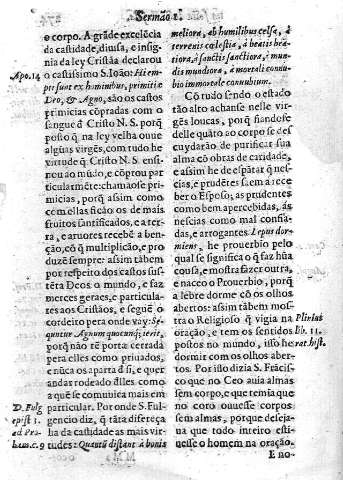 Sermão 1.
e corpo. A grãde excelẽcia
da castidade, diuisa, e insig-
nia da ley Cristãa declarou
o castissimo S. Ioão: Hi em-
Apo. 14
pti sunt ex hominibus, primitiæ
Deo, & Agno, são os castos
primicias cõpradas com o
sangue d Cristo N. S. porq̃
posto q̃ na ley velha ouue
algũas virgẽs, com tudo he
virtude q̃ Cristo N. S. ensi-
nou ao mũdo, e cõprou par-
ticularmẽte: chamaose pri-
micias, porq̃ assim como
com ellas ficão os de mais
fruitos santificados, e a ter-
ra, e aruores recebẽ a bẽn-
ção, cõ q̃ multiplicão, e pro
duzẽ sempre: assim tãbem
por respeito dos castos sus-
tẽta Deos o mundo, e faz
merces geraes, e particula-
res aos Cristãos, e seguẽ o
cordeiro pera onde vay: Se-
quuntur Agnum quocunq; ierit,
porq̃ não tẽ porta cerrada
pera elles como priuados, e
nũca os aparta d si, e quer
andar rodeado d'lles como
a que se comunica mais em
particular. Por onde S. Ful-
D. Fulg
gencio diz, q̃ tãta difereça
epist 1.
ha da castidade as mais vir-
ad Pro
tudes: Quantũ distant à bonis
bam. c. 9
meliora, ab humilibus celsa, à
terrenis cœlestia, à beatis bea-
tiora, à sanctis sanctiora, à mun-
dis mundiora, à mortali connu-
bio immortale connubium.
Cõ tudo sendo o estado
tão alto achanse nelle vir-
gẽs loucas, porq̃ fiandose
delle quãto ao corpo se des
cuydarão de purificar sua
alma cõ obras de caridade,
e assim he de espãtar q̃ nes-
cias, e prudẽtes saem a rece
ber o Esposo; as prudentes
como bem apercebidas, as
nescias como mal confia-
das, e arrogantes. Lepus dor-
miens, he prouerbio pelo
qual se significa o q̃ faz hũa
cousa, e mostra fazer outra,
e naceo o Prouerbio, porq̃
a lebre dorme cõ os olhos
abertos: assim tãbem mos-
tra o Religioso q̃ vigia na
Plinius
oração, e tem os sentidos
lib. 11.
postos no mundo, isso he
nat. hist.
dormir com os olhos aber-
tos. Por isso dizia S. Frãcis-
co que no Ceo auia almas
sem corpo, e que temia que
no coro ouuesse corpos
sem almas, porque desẽja-
ua que todo inteiro esti-
uesse o homem na oração.
E no-